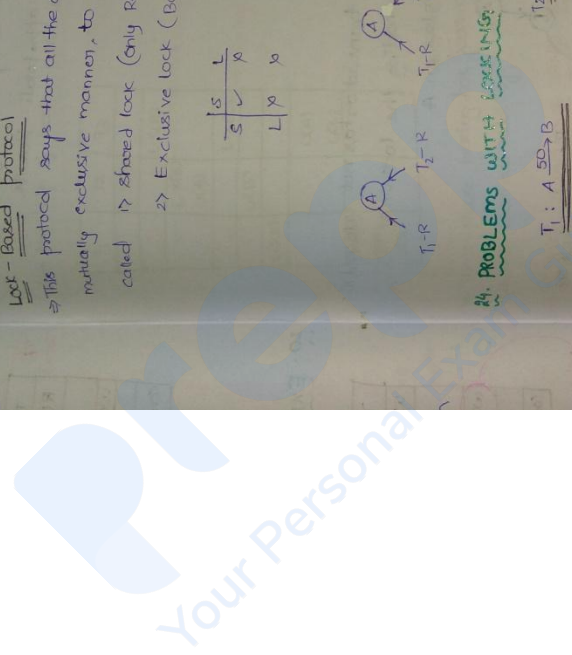 Lock - Based protocol
⇒ This protocol says that all the
mutually exclusive manner, to
called 1> Shared lock (only R
2> Exclusive lock (
S L
S ✓ x
L x x
A A
T1-R T2-R T1-R
24. PROBLEMS WITH LOCKING:
T1 : A 50→ B T2
prepp
Your Personal Exam Gu